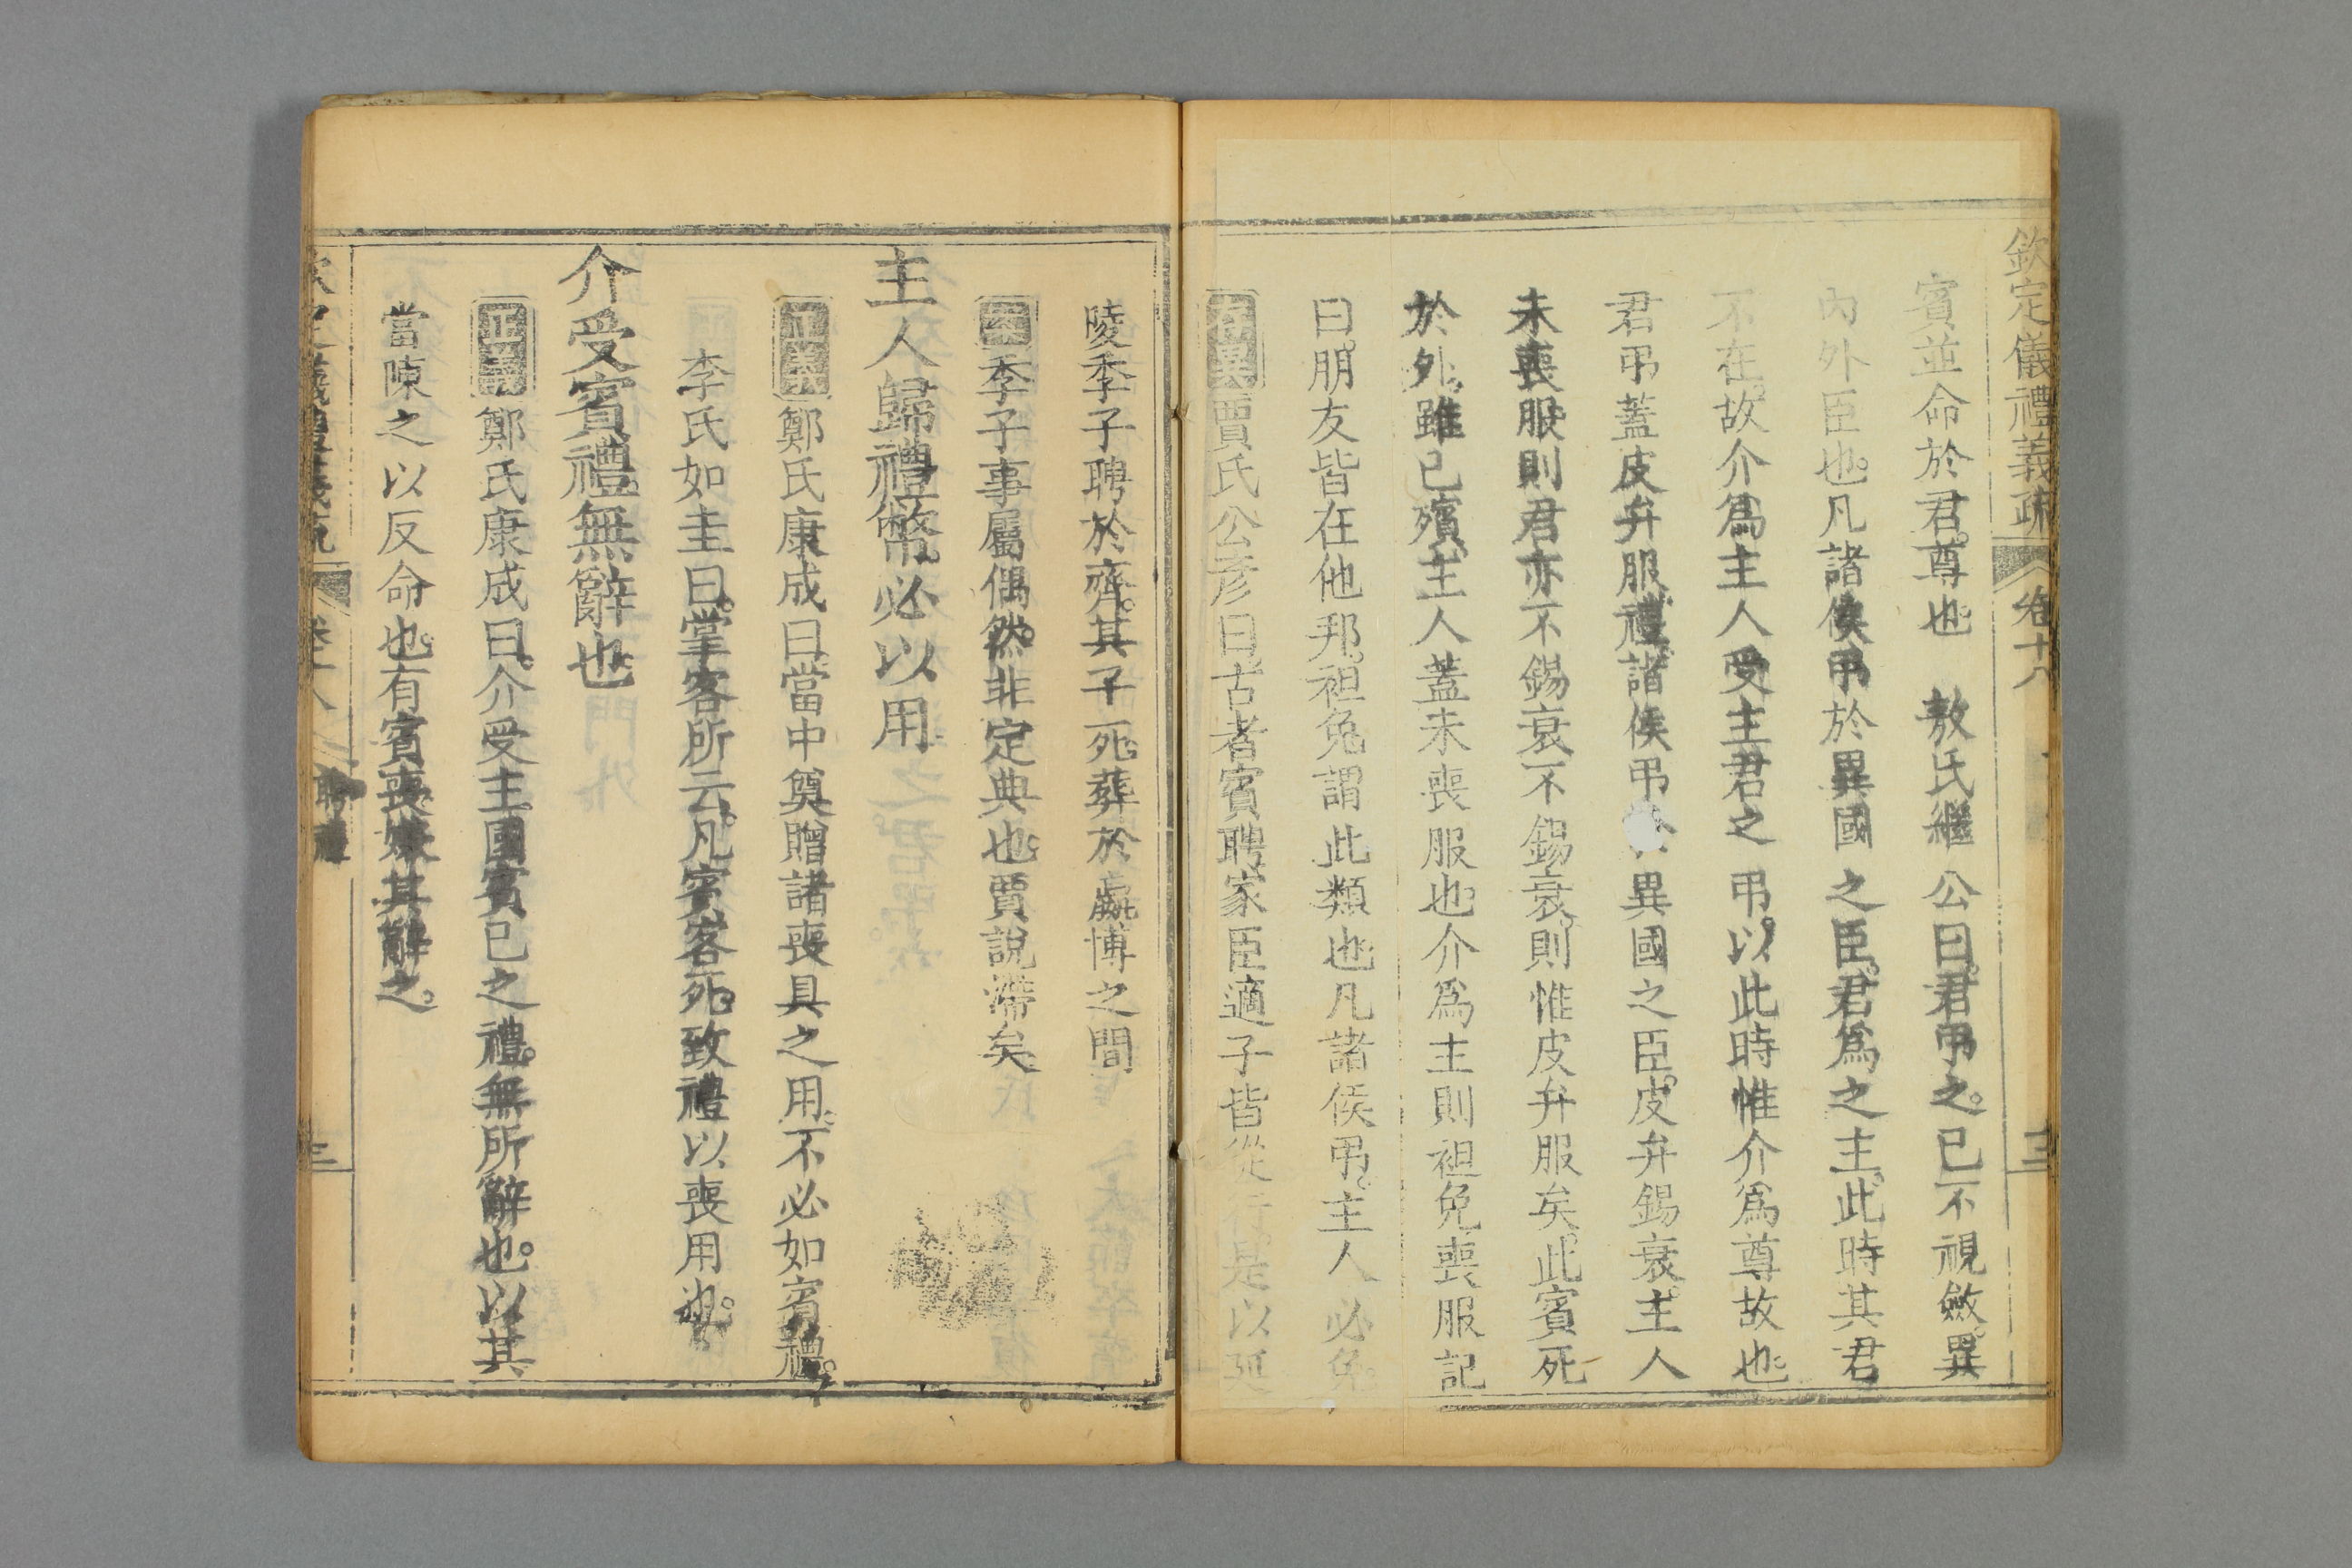 欽定儀禮義疏 卷十八 三
賓並命於君尊也 敖氏繼公曰君弔之已不視斂異
內外臣也凡諸侯弔於異國之臣君爲之主此時其君
不在故介爲主人受主君之弔以此時惟介爲尊故也
君弔蓋皮弁服禮諸侯弔 異國之臣皮弁錫衰主人
未喪服則君亦不錫衰不錫衰則惟皮弁服矣此賓死
於外雖已殯主人蓋未喪服也介爲主則袒免喪服記
曰朋友皆在他邦袒免謂此類也凡諸侯弔主人必免
存異賈氏公彥曰古者賓聘家臣適子皆從行是以延
陵季子聘於齊其子死葬於嬴博之間
案季子事屬偶然非定典也賈說滯矣
主人歸禮幣必以用
正義鄭氏康成曰當中奠贈諸喪具之用不必如賓禮
李氏如圭曰掌客所云凡賓客死致禮以喪用也
介受賓禮無辭也
正義鄭氏康成曰介受主國賓己之禮無所辭也以其
當陳之以反命也有賓喪嫌其辭之
欽定儀禮義疏 卷十八 聘禮 三